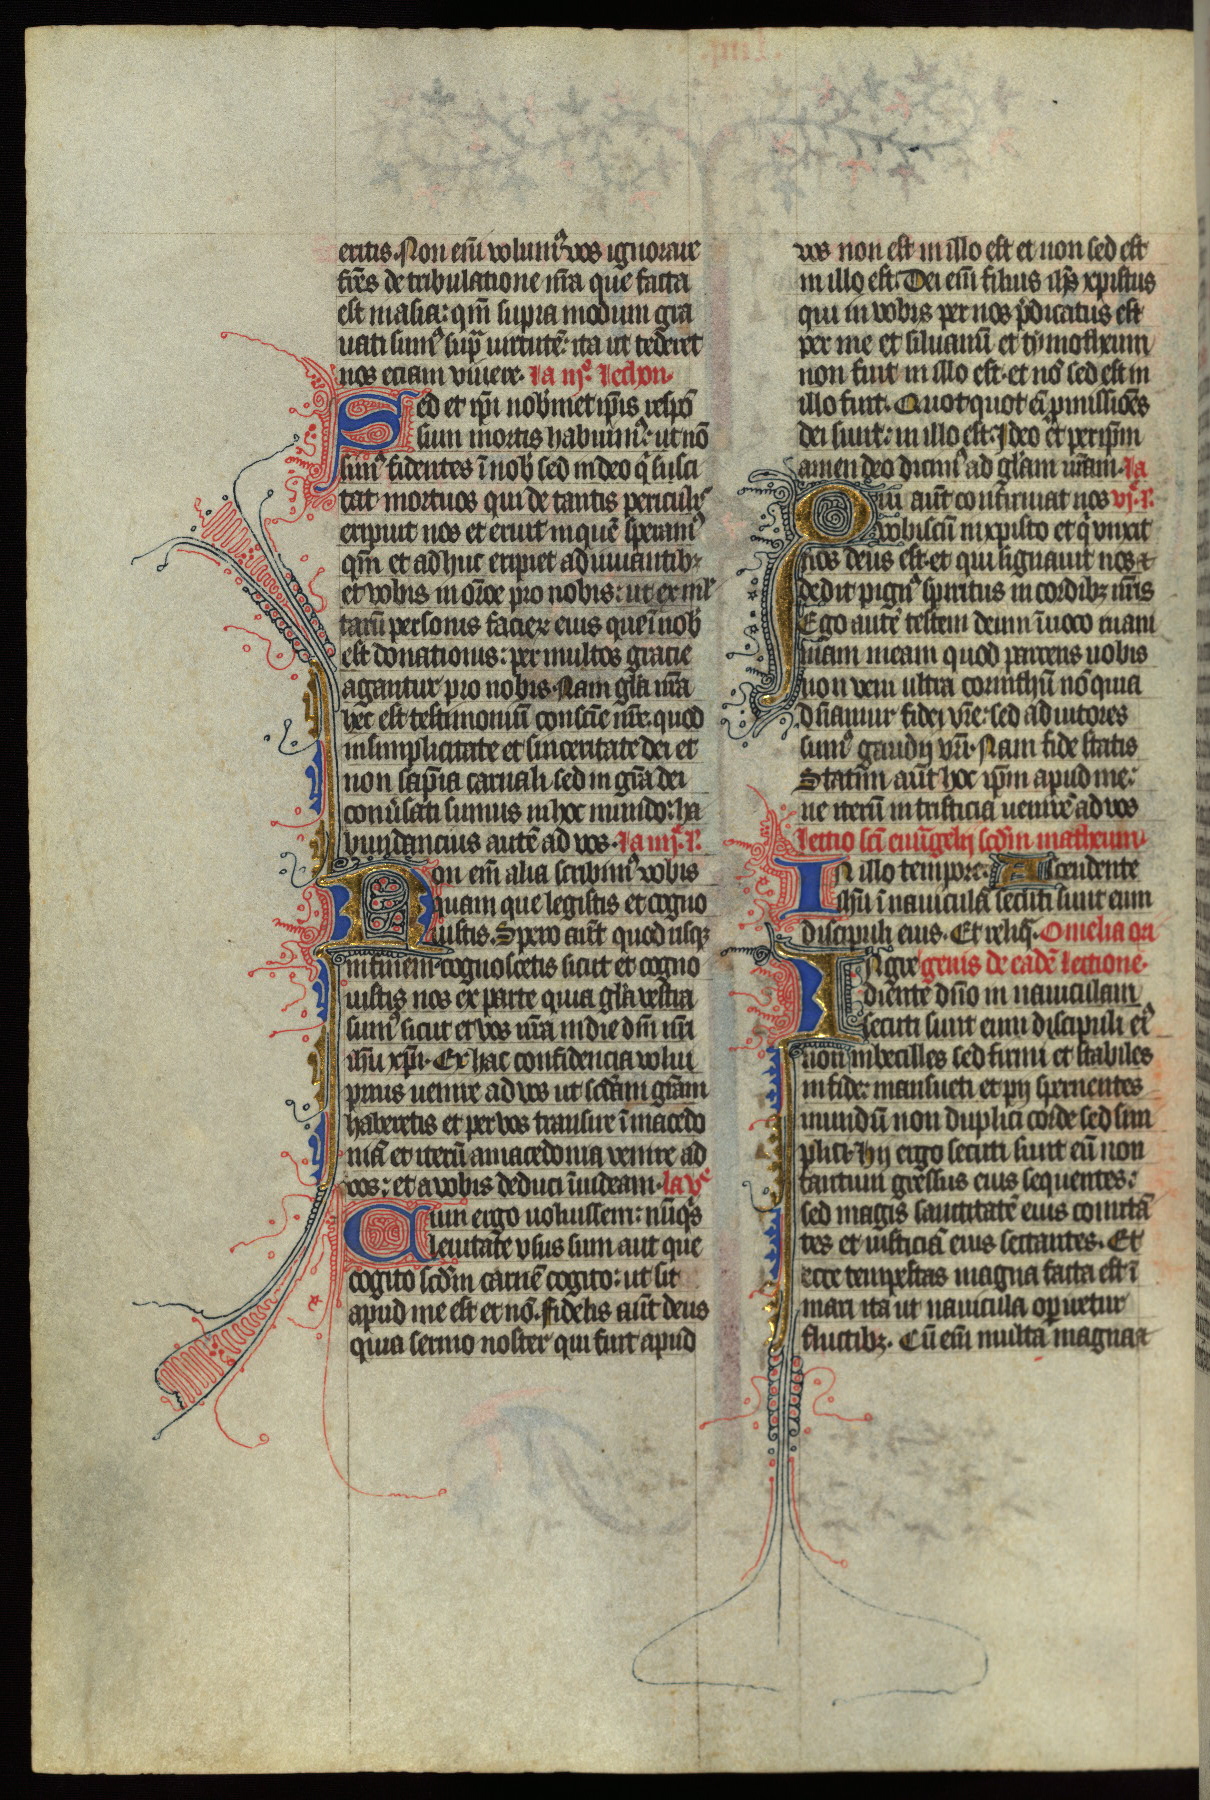 eritis. Non em̃ volumꝰ vos ignorare
fr̃es de tribulatione nr̃a que facta
est in asia: qm̃ supra modum gra
uati sumꝰ sup̃ uirtutẽ: ita ut tederet
nos eciam viuere. la iijᵃ. lection.
Sed et ip̃i nob̃met ip̃is respõ
sum mortis habuimꝰ: ut nõ
simꝰ fidentes ĩ nob̃ sed in deo q̃ susci
tat mortuos qui de tantis periculꝭ
eripuit nos et eruit in quẽ speramꝰ
qm̃ et adhuc eripiet adiuuantibꝫ
et vobis in or̃oe pro nobis: ut ex ml̃
tarũ personis facieꝝ eius que ĩ nob̃
est donationis: per multos gracie
agantur pro nobis. Nam gl̃a nr̃a
hec est testimoniũ conscie nr̃e. quod
in simplicitate et sinceritate dei et
non sap̃ia carnali sed in gr̃a dei
conũsati sumus in hoc mundo: ha
bundancius autẽ ad vos. la iiijᵃ. P.
Non em̃ alia scribimꝰ vobis
quam que legistis et cogno
uistis. Spero aut̃ quod usqꝫ
in finem cognoscetis sicut et cogno
uistis nos ex parte quia gl̃a vestra
sumꝰ sicut et vos nr̃a in die dn̄i nr̃i
ih̃u xp̃i. Ex hac confidencia volui
prius uenire ad vos ut sc̃dam gr̃am
haberetis et per vos transire ĩ macedo
niã et iterũ a macedonia venire ad
vos: et a vobis deduci ĩ iudeam. la vᵃ
Cum ergo uoluissem: nũq̃s
leuitate vsus sum aut que
cogito scd̃m carnẽ cogito: ut sit
apud me est et nõ. fidelis aut̃ deus
quia sermo noster qui fuit apud
vos non est in illo est et non sed est
in illo est. Dei em̃ filius ih̃s xpistus
qui in vobis per nos p̃dicatus est
per me et siluanũ et tymotheum
non fuit in illo est. et nõ sed est in
illo fuit. Quotquot em̃ p̃missiões
dei sunt: in illo est: Ideo et per ip̃m
amen deo dicimꝰ ad gl̃am nr̃am. la
Qui aut̃ confirmat nos vjᵃ. P.
vobiscũ in xpisto et q̃ vnxit
nos deus est. et qui signauit nos ⁊
dedit pignꝰ spiritus in cordibꝫ nr̃is
Ego autẽ testem deum ĩuoco in ani
mam meam quod parcens uobis
non veni ultra corinthũ nõ quia
d̃namur fidei vr̃e: sed adiutores
sumꝰ gaudij vr̃i. Nam fide statis
Statui aut̃ hoc ip̃m apud me:
ne iterũ in tristicia uenirẽ ad vos
lectio sc̃i euãgelij scd̃m matheum.
In illo tempore. Ascendente
ih̃u ĩ nauiculã secuti sunt eum
discipuli eius. Et reliq̃. Omelia ori
Ingre genis de eadẽ lectione.
diente dn̄o in nauiculam
secuti sunt eum discipuli eiꝰ
non inbecilles sed firmi et stabiles
in fide: mansueti et pij spernentes
mundũ non duplici corde sed sim
plici. Hij ergo secuti sunt eũ non
tantum gressus eius sequentes:
sed magis sanctitatẽ eius comitã
tes et iusticiã eius sectantes. Et
ecce tempestas magna facta est ĩ
mari ita ut nauicula operiretur
fluctibꝫ. Cũ em̃ multa magna ⁊